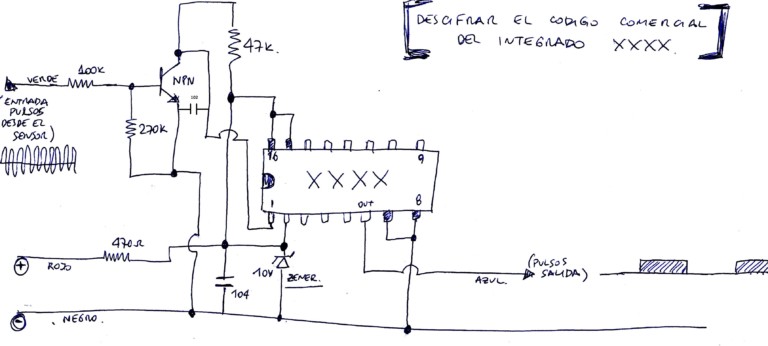 DESCIFRAR EL CODIGO COMERCIAL
DEL INTEGRADO XXXX.
47K.
100K
VERDE
NPN
102
(ENTRADA
PULSOS
DESDE EL
SENSOR)
270K
16
9
XXXX
1
OUT
8
470Ω
+
ROJO
10V
ZENER.
104
(PULSOS
SALIDA)
AZUL.
-
NEGRO.